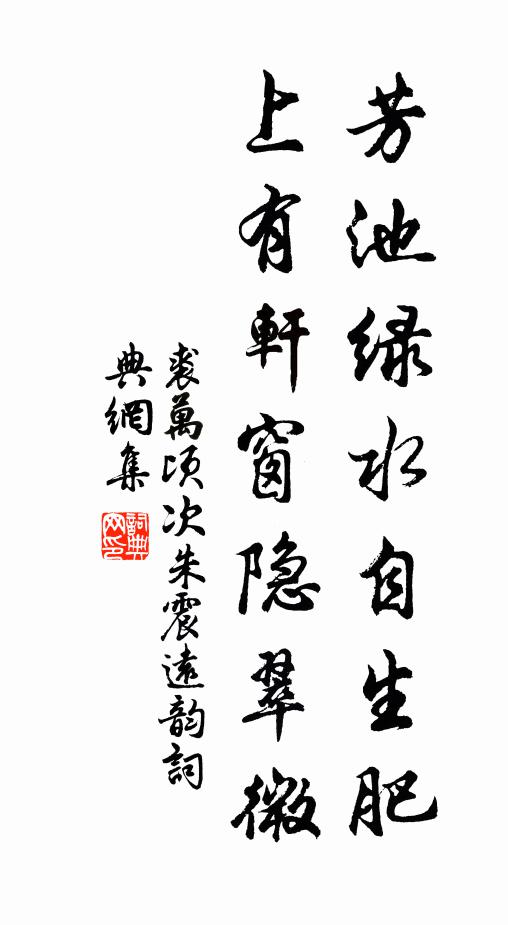 芳池緑水自生肥
上有軒窗隐翠微
裘萬頃次朱震遠韵詞
典網集
詞典網印